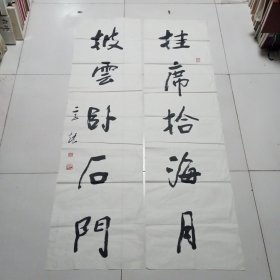 挂席拾海月
披雲卧石門